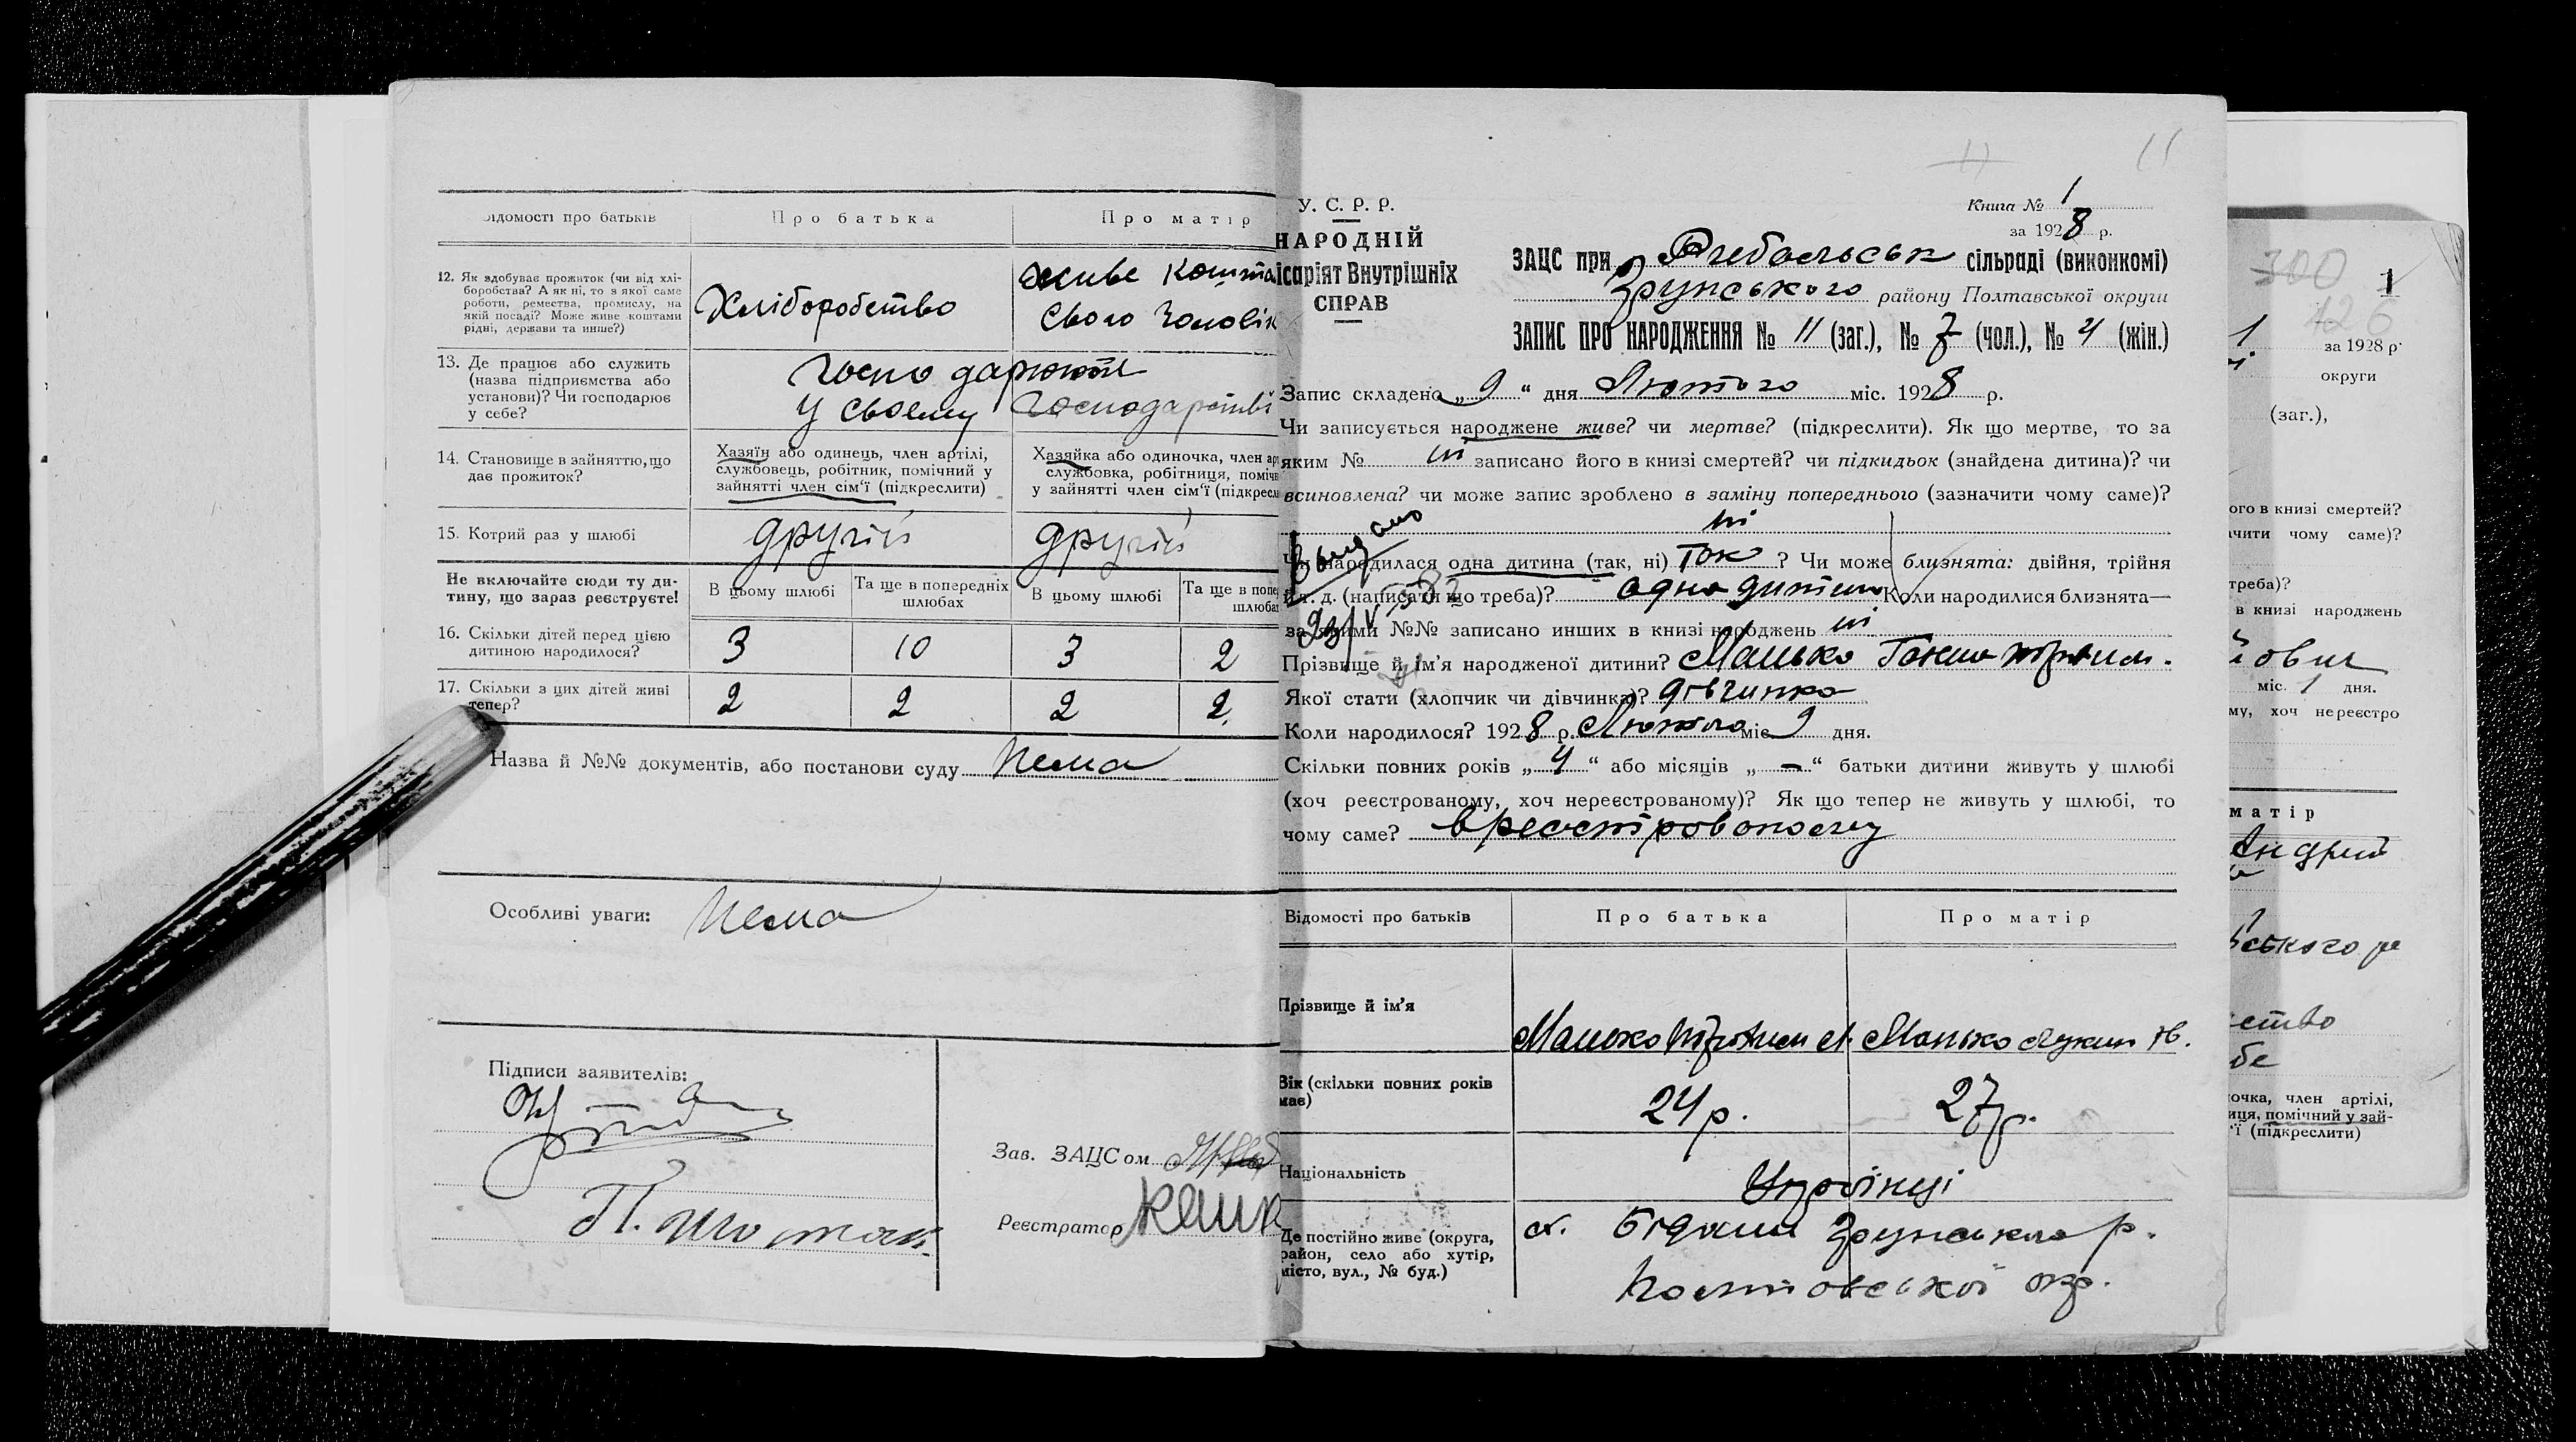 Відомості про батьків
Про батька
Про матір
12. Як здобуває прожиток (чи від хлі-
боробства? А як ні, то з якої саме
роботи, ремества, промислу, на
якій посаді? Може живе коштами
рідні, держави та инше?)
Хліборобство
живе кошта
свого чоловік
13. Де працює або служить
(назва підприємства або
установи)? Чи господарює
у себе?
Господарюють
у своєму господарстві
14. Становище в зайняттю, що
дає прожиток?
Хазяїн або одинець, член артілі,
службовець, робітник, помічний у
зайнятті член сім'ї (підкреслити)
Хазяйка або одиночка, член ар
службовка, робітниця, поміч
у зайнятті член сім'ї (підкресл
15. Котрий раз у шлюбі
другій
другій
Не включайте сюди ту ди-
тину, що зараз реєструєте!
В цьому шлюбі
Та ще в попередніх
шлюбах
В цьому шлюбі
Та ще в попе
шлюба
16. Скільки дітей перед цією
дитиною народилося?
3
10
3
2
17. Скільки з цих дітей живі
тепер?
2
2
2
2
Назва й №№ документів, або постанови суду нема
Особливі уваги: Нема
Підписи заявителів:
Зав. ЗАЦСом
Реєстратор
11
У. С. Р. Р.
НАРОДНІЙ
ісаріят Внутрішніх
СПРАВ
Книга № 1
за 1928 р.
ЗАЦС при сільраді (виконкомі)
району Полтавської округи
ЗАПИС ПРО НАРОДЖЕННЯ № 11 (заг.), № 7 (чол.), № 4 (жін.)
Запис складено „9“ дня Лютого міс. 1928 р.
Чи записується народжене живе? чи мертве? (підкреслити). Як що мертве, то за
яким № ні записано його в книзі смертей? чи підкидьок (знайдена дитина)? чи
всиновлена? чи може запис зроблено в заміну попереднього (зазначити чому саме)?
ні
Чи народилася одна дитина (так, ні) Так? Чи може близнята: двійня, трійня
й т. д. (написати що треба)? одна дитина Коли народилися близнята—
за якими №№ записано инших в книзі народжень ні
Прізвище й ім'я народженої дитини? Манько
Якої стати (хлопчик чи дівчинка)? дівчинка
Коли народилося? 1928 р. Лютого міс 9 дня.
Скільки повних років „4“ або місяців „—“ батьки дитини живуть у шлюбі
(хоч реєстрованому, хоч нереєстрованому)? Як що тепер не живуть у шлюбі, то
чому саме? в реєстрованому
Відомості про батьків
Про батька
Про матір
Прізвище й ім'я
Манько
Манько
Вік (скільки повних років
має)
24 р.
27 р.
Національність
Українці
Де постійно живе (округа,
район, село або хутір,
місто, вул., № буд.)
х. р.
Полтавської окр.
300
1
126
1
за 1928 р.
округи
(заг.),
ого в книзі смертей?
ачити чому саме)?
треба)?
в книзі народжень
міс. 1 дня.
му, хоч нереєстро
матір
Андрій
ського
ство
бе
очка, член артілі,
иця, помічний у зай-
'ї (підкреслити)